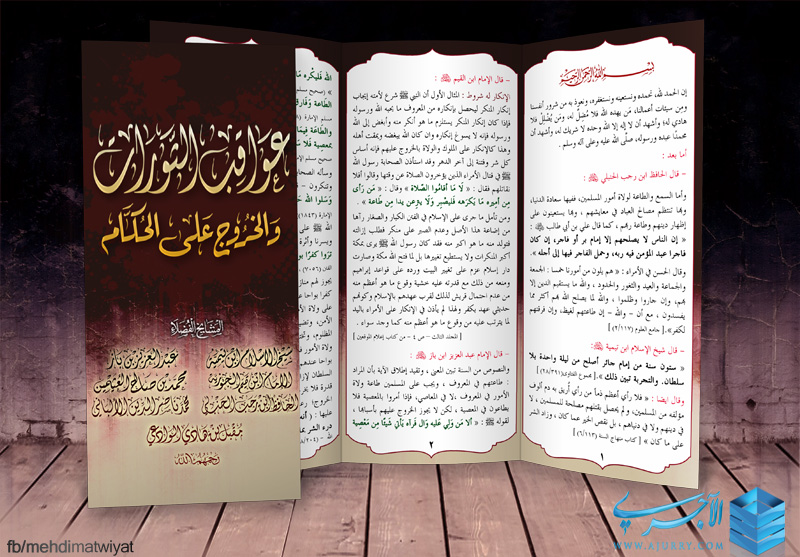 عواقب الثورات
والخروج على الحكام
المشايخ الفضلاء
شيخ الإسلام ابن تيمية
عبد العزيز بن باز
الإمام ابن قيم الجوزية
محمد بن صالح العثيمين
الحافظ ابن رجب الحنبلي
محمد ناصر الدين الألباني
مقبل بن هادي الوادعي
رحمهم الله
بسم الله الرحمن الرحيم
إن الحمد لله، نحمده ونستعينه ونستغفره، ونعوذ به من شرور أنفسنا
ومن سيئات أعمالنا، من يهده الله فلا مُضلَّ له، ومن يُضلل فلا
هادي له، وأشهد أن لا إله إلا الله وحده لا شريك له، وأشهد أن
محمدًا عبده ورسوله، صلَّى الله عليه وعلى آله وسلم .
أما بعد :
– قال الحافظ ابن رجب الحنبلي :
وأما السمع والطاعة لولاة أمور المسلمين، ففيها سعادة الدنيا،
وبها تنتظم مصالح العباد في معايشهم ، وبها يستعينون على
إظهار دينهم وطاعة ربهم ، كما قال علي بن أبي طالب :
« إن الناس لا يصلحهم إلا إمام بر أو فاجر، إن كان
فاجرا عبد المؤمن فيه ربه، وحمل الفاجر فيها إلى أجله ».
وقال الحسن في الأمراء : « هم يلون من أمورنا خمسا : الجمعة
والجماعة والعيد والثغور والحدود ، والله ما يستقيم الدين إلا
بهم، وإن جاروا وظلموا ، والله لما يصلح الله بهم أكثر مما
يفسدون ، مع أن – والله – إن طاعتهم لغيظ، وإن فرقتهم
لكفر».[جامع العلوم (٢/١١٧)]
– قال شيخ الإسلام ابن تيمية :
« ستون سنة من إمام جائر أصلح من ليلة واحدة بلا
سلطان. والتجربة تبين ذلك ».[مجموع الفتاوى(٢٨/٣٩١)]
وقال أيضا : « فلا رأي أعظم ذما من رأي أُريق به دم ألوف
مؤلفة من المسلمين، ولم يحصل بقتلهم مصلحة للمسلمين، لا
في دينهم ولا في دنياهم ، بل نقص الخير عما كان ، وزاد الشر
على ما كان » [كتاب منهاج السنة (٦/١١٣)]
١
– قال الإمام ابن القيم :
الإنكار له شروط : المثال الأول أن النبي ﷺ شرع لأمته إيجاب
إنكار المنكر ليحصل بإنكاره من المعروف ما يحبه الله ورسوله
فإذا كان إنكار المنكر يستلزم ما هو أنكر منه وأبغض إلى الله
ورسوله فإنه لا يسوغ إنكاره وان كان الله يبغضه ويمقت أهله
وهذا كالإنكار على الملوك والولاة بالخروج عليهم فإنه أساس
كل شر وفتنة إلى آخر الدهر وقد استأذن الصحابة رسول الله
ﷺ في قتال الأمراء الذين يؤخرون الصلاة عن وقتها وقالوا أفلا
نقاتلهم فقال : « لَا مَا أَقَامُوا الصَّلَاةَ » وقال : « مَن رَأَى
مِن أميره مَا يَكرَهه فَليَصْبِر وَلَا يَنزعَن يدا مِن طَاعة » .
ومن تأمل ما جرى على الإسلام في الفتن الكبار والصغار رآها
من إضاعة هذا الأصل وعدم الصبر على منكر فطلب إزالته
فتولد منه ما هو اكبر منه فقد كان رسول الله ﷺ يرى بمكة
أكبر المنكرات ولا يستطيع تغييرها بل لما فتح الله مكة وصارت
دار إسلام عزم على تغيير البيت ورده على قواعد إبراهيم
ومنعه من ذلك مع قدرته عليه خشية وقوع ما هو أعظم منه
من عدم احتمال قريش لذلك لقرب عهدهم بالإسلام وكونهم
حديثي عهد بكفر ولهذا لم يأذن في الإنكار على الأمراء باليد
لما يترتب عليه من وقوع ما هو أعظم منه كما وجد سواء .
[المجلد الثالث – ص ٤ – من كتاب إعلام الموقعين ]
– قال الإمام عبد العزيز ابن باز :
والنصوص من السنة تبين المعنى ، وتقيد إطلاق الآية بأن المراد
: طاعتهم في المعروف ، ويجب على المسلمين طاعة ولاة
الأمور في المعروف ،لا في المعاصي، فإذا أمروا بالمعصية فلا
يطاعون في المعصية ، لكن لا يجوز الخروج عليهم بأسبابها ،
لقوله ﷺ : « أَلا مَن وَلِي عَليه وَال فَرآه يَأتي شَيئًا مِنْ مَعْصِيَة
٢
الله فَليكره مَا
fb/mehdimatwiyat
الآجري
WWW.AJURRY.COM